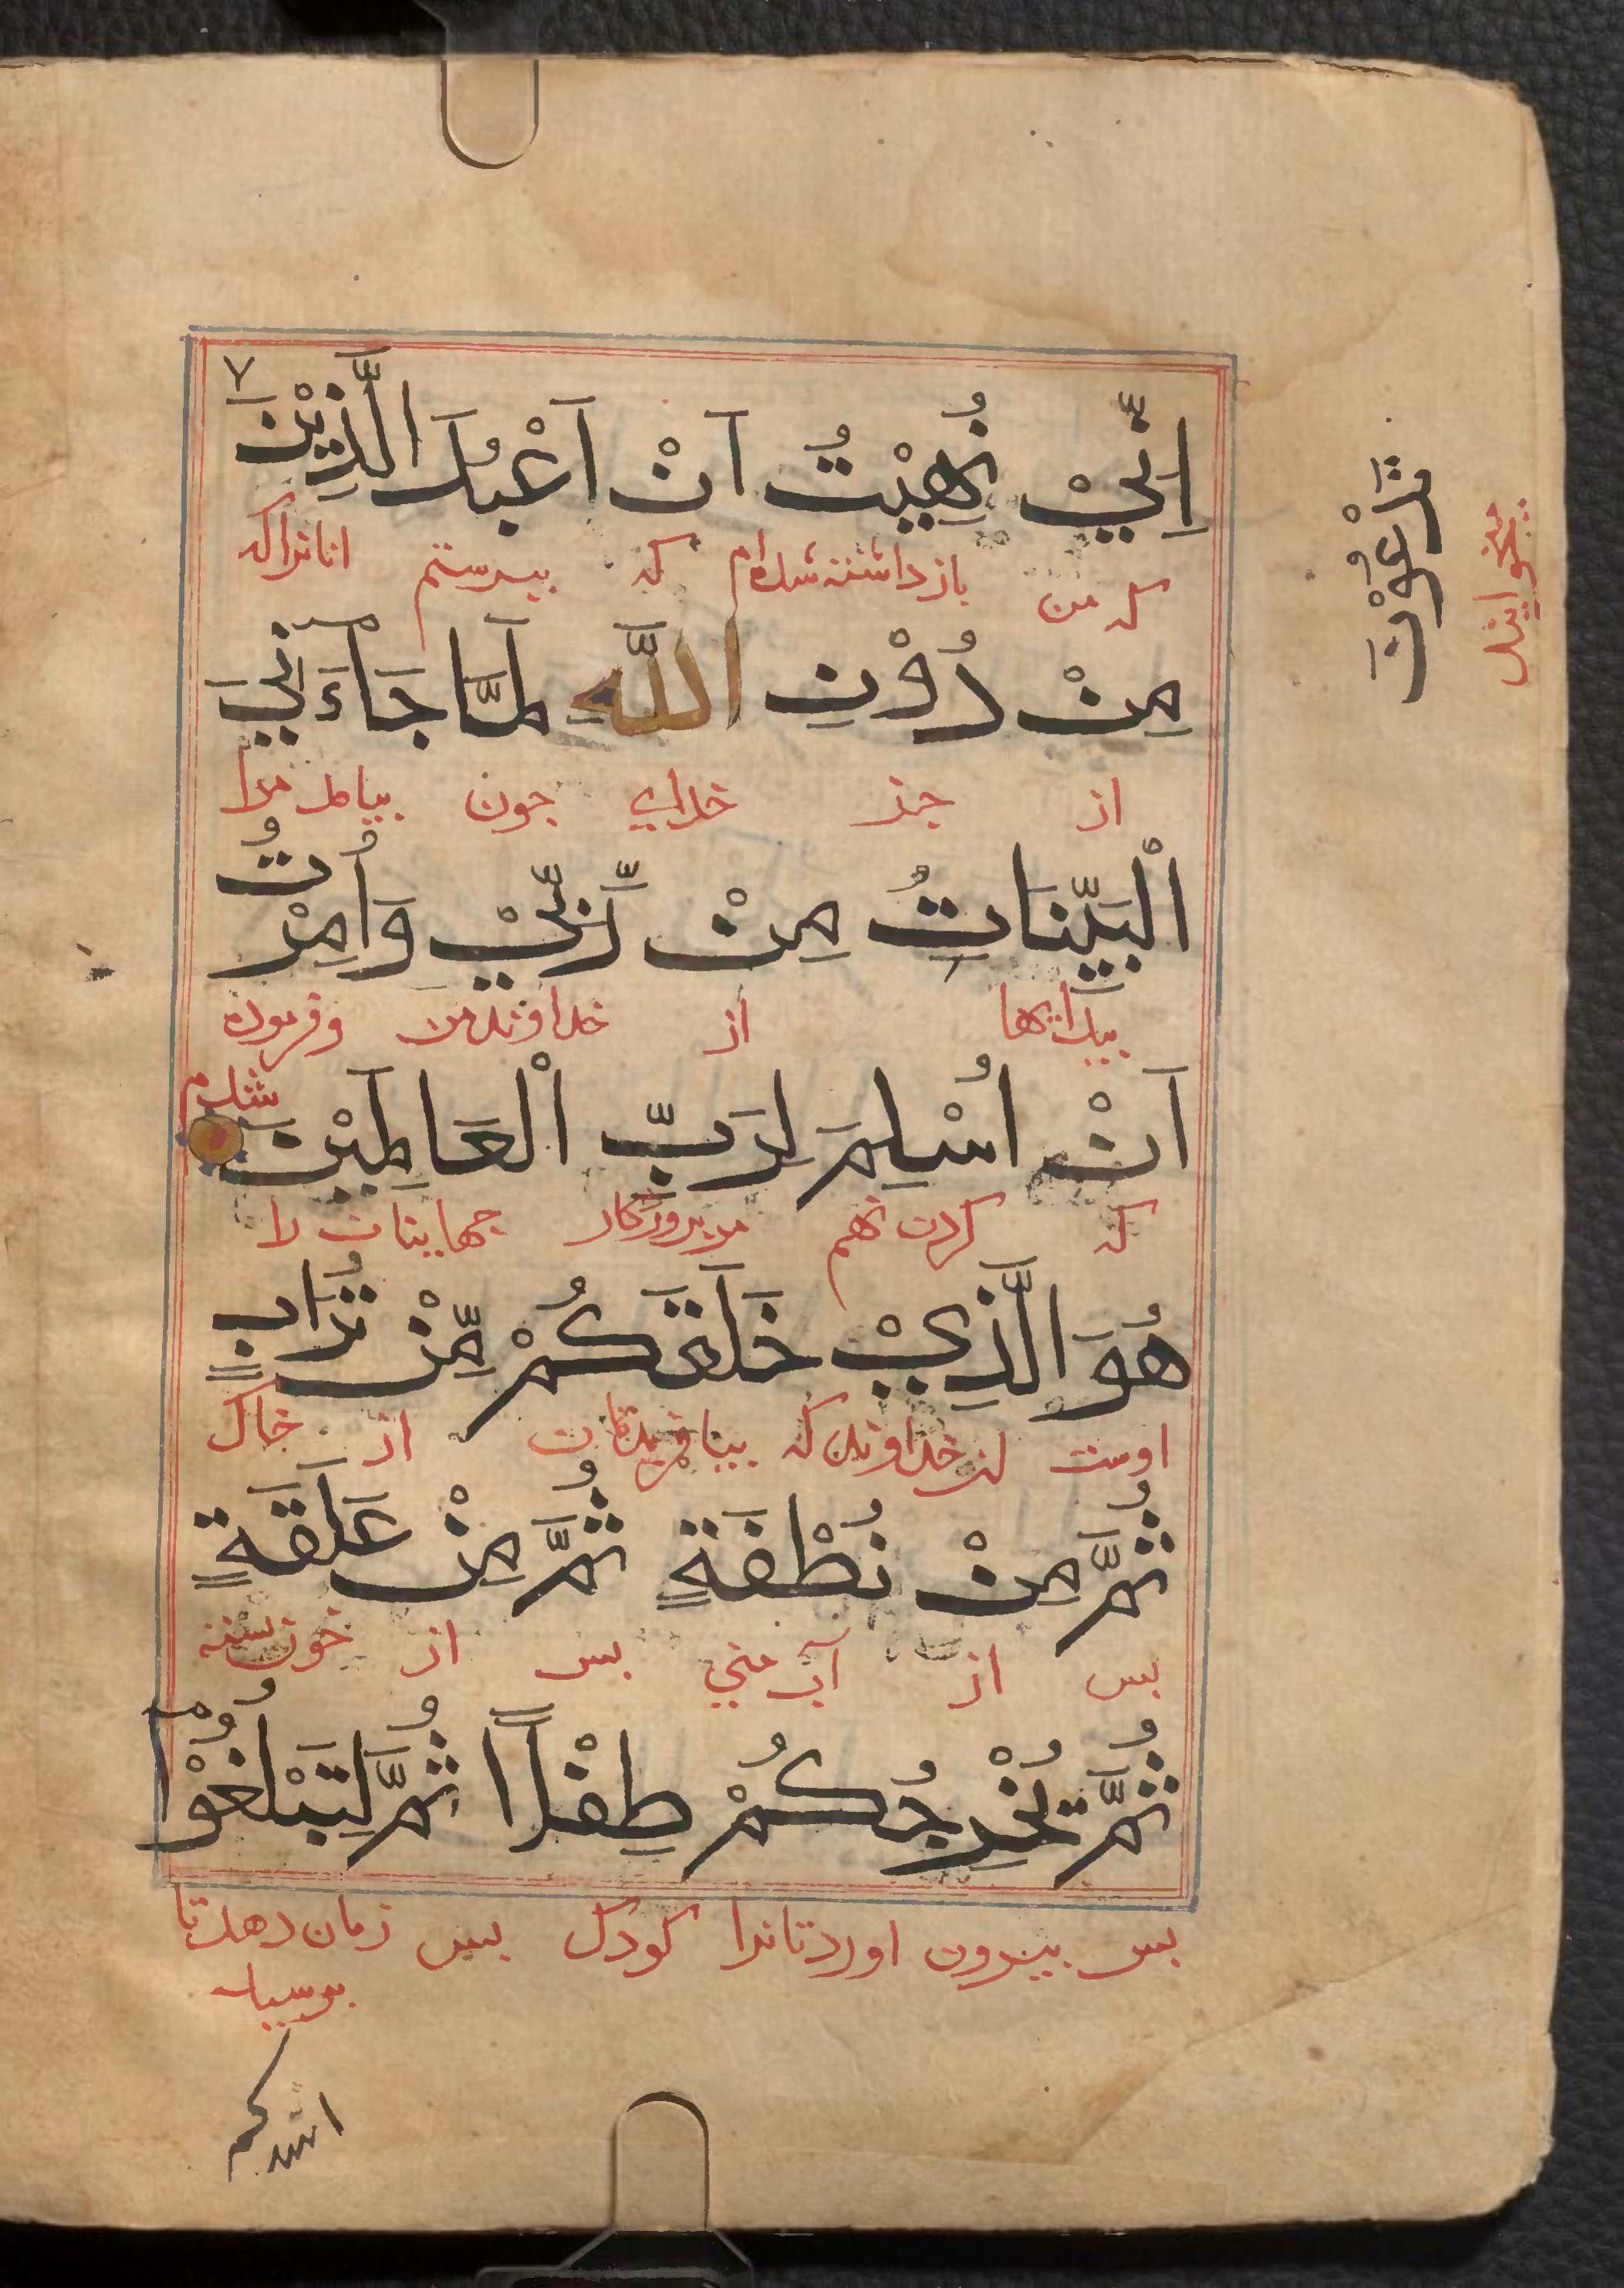 اِنِّيْ نُهِيْتُ اَنْ اَعْبُدَ الَّذِيْنَ
که من بازداشته شده‌ام که بپرستم انانرا که
مِنْ دُوْنِ اللَّهِ لَمَّا جَاۤءَنِيَ
از جز خدای جون بیامد مرا
اَلْبَيِّنَاتُ مِنْ رَّبِّيْ وَاُمِرْتُ
از خداوند من و فرموده
شدم
اَنْ اُسْلِمَ لِرَبِّ الْعَالَمِيْنَ
که کردن نهم مر پروردکار جهانیان را
هُوَ الَّذِيْ خَلَقَكُمْ مِّنْ تُرَابٍ
اوست خداوندی که بیافریدتان از خاک
ثُمَّ مِنْ نُطْفَةٍ ثُمَّ مِنْ عَلَقَةٍ
بس از آب منی بس از خون بسته
ثُمَّ يُخْرِجُكُمْ طِفْلاً ثُمَّ لِتَبْلُغُوْۤا
بس بیرون اوردتانرا کودک بس زمان دهد تا
برسید
اشدكم
تَدْعُوْنَ
میخوانید